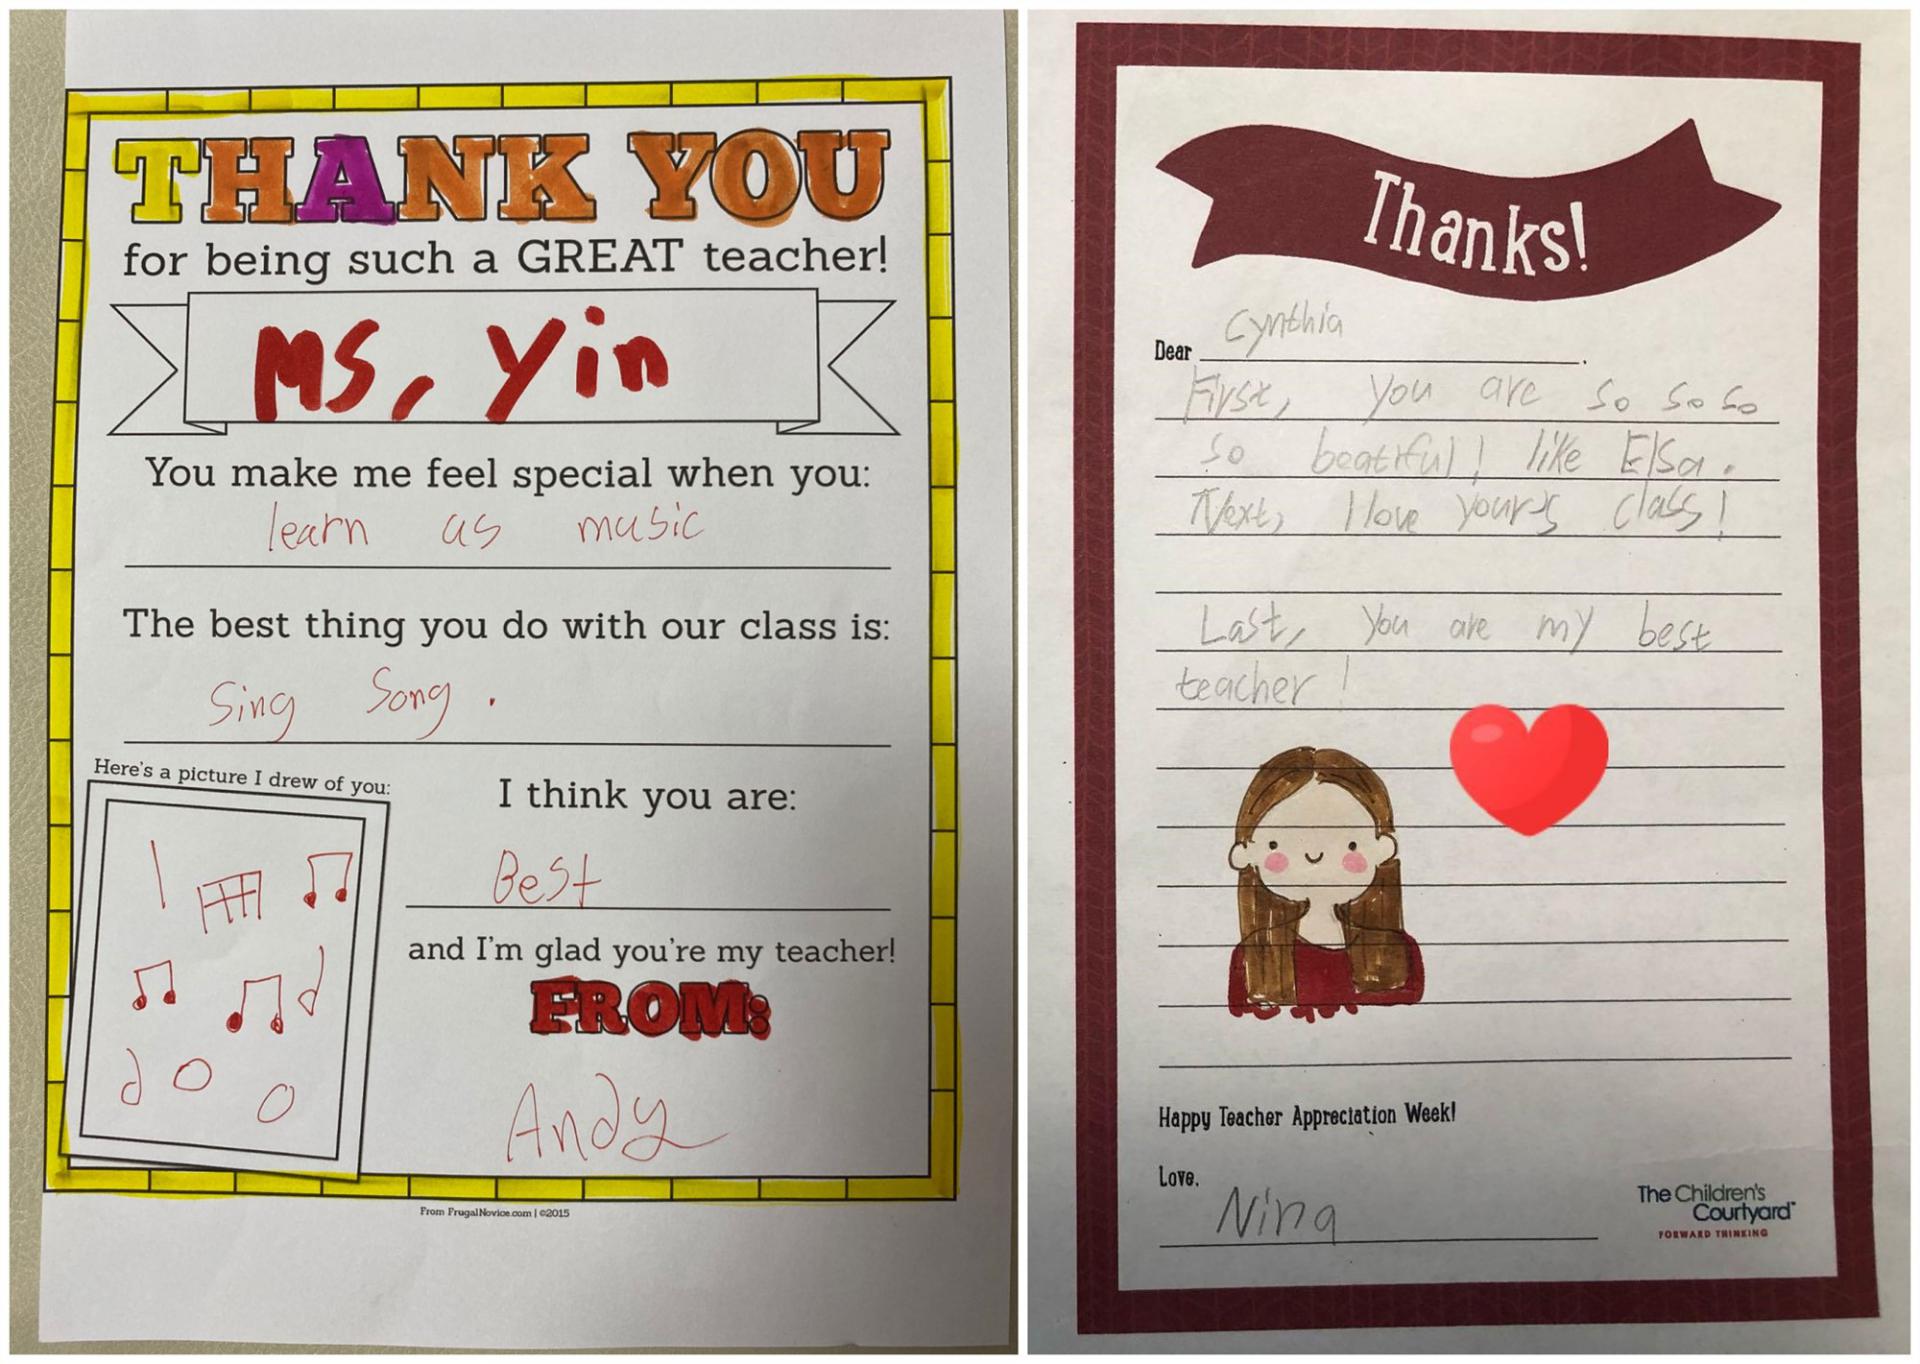 THANK YOU
for being such a GREAT teacher!
Ms, Yin
You make me feel special when you:
learn as music
The best thing you do with our class is:
Sing Song.
Here's a picture I drew of you:
I think you are:
BeSt
and I'm glad you're my teacher!
FROM:
Andy
From FrugalNovice.com | ©2015
Thanks!
Dear Cynthia.
First, you are so so so
so beatiful! like Elsa.
Next, I love your's class!
Last, you are my best
teacher!
Happy Teacher Appreciation Week!
Love,
Nina
The Children's
Courtyard™
FORWARD THINKING